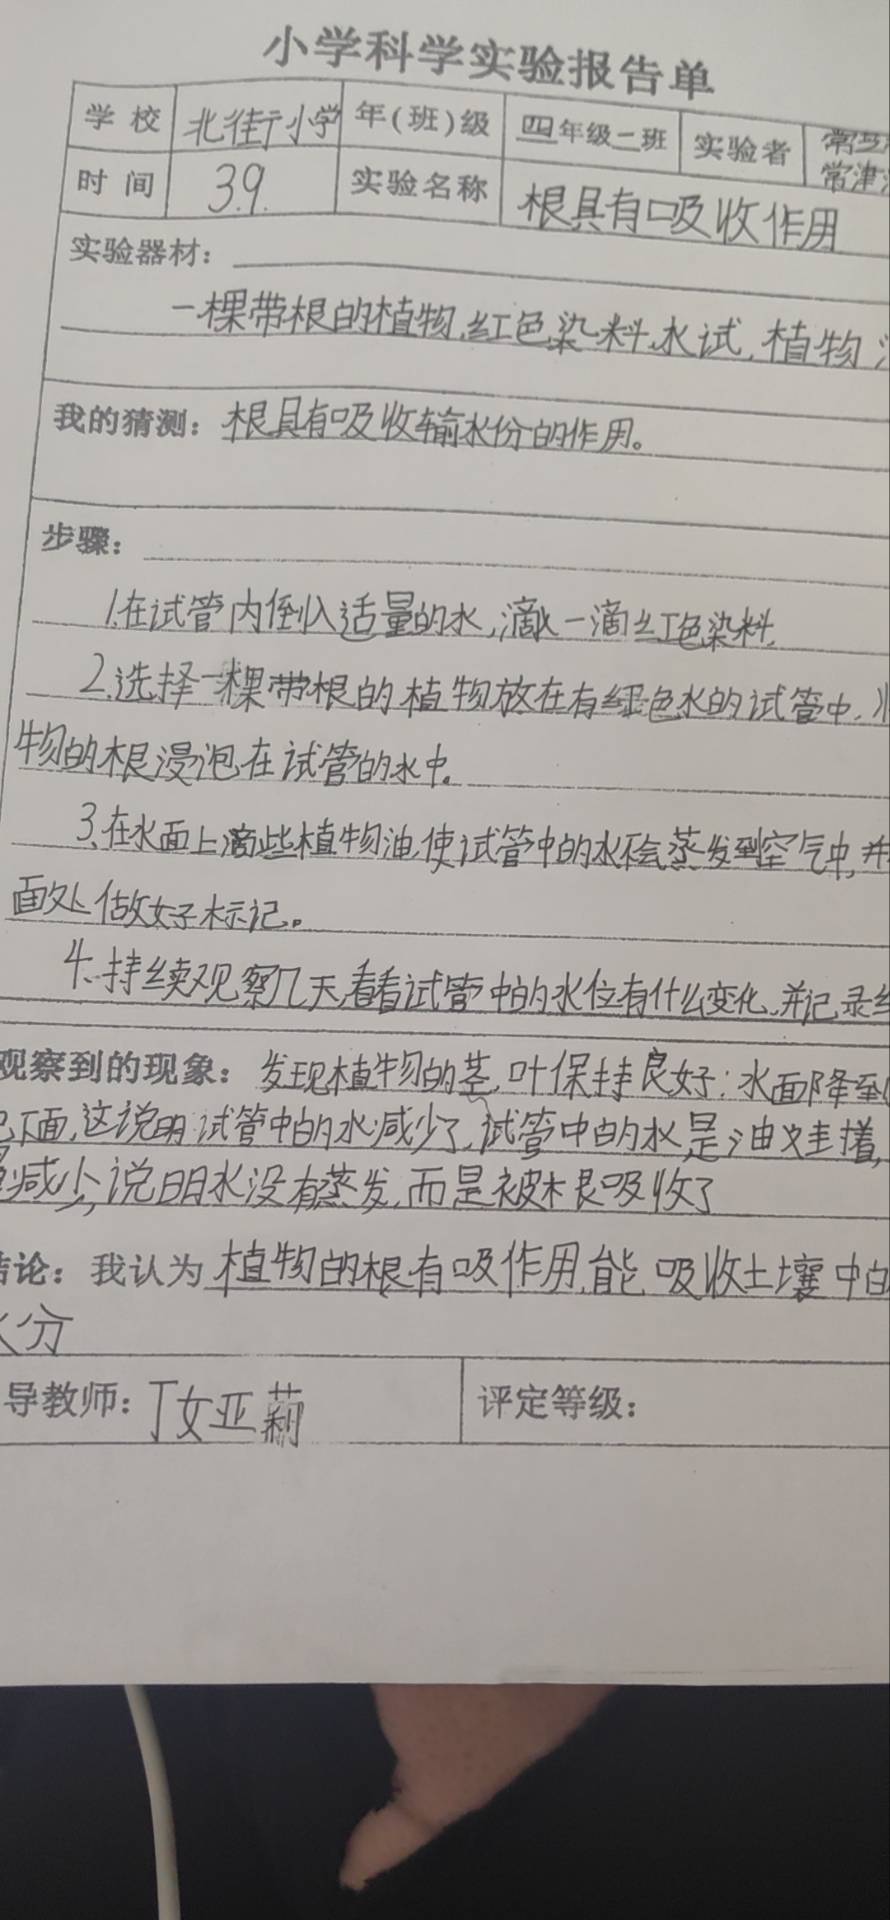 小学科学实验报告单
学校 北街小学 年(班)级 四年级二班 实验者
常津
时间 3.9. 实验名称 根具有吸收作用
实验器材：
一棵带根的植物,红色染料,水试,植物
我的猜测：根具有吸收输水份的作用。
步骤：
1.在试管内倒入适量的水,滴一滴红色染料,
2.选择一棵带根的植物放在有红色水的试管中,
物的根浸泡在试管的水中。
3.在水面上滴些植物油,使试管中的水不会蒸发到空气中,并
面处做好标记。
4.持续观察几天,看看试管中的水位有什么变化,并记录
观察到的现象：发现植物的茎,叶保持良好;水面降到
下面,这说明试管中的水减少了,试管中的水是油挡着,
减少,说明水没有蒸发,而是被根吸收了
结论：我认为植物的根有吸作用,能吸收土壤中的
水分
导教师：丁女亚莉 评定等级：